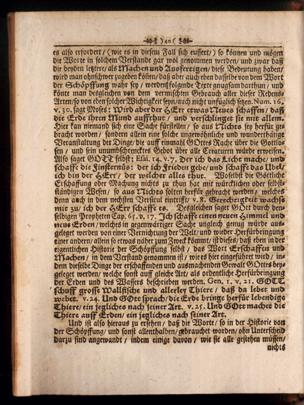 es also erfordert / (wie es in diesem Fall sich eussert/) so können und mögen
die Worte in solchem Verstande gar wol genommen werden / und zwar daß
die beyden letztere / als Machen und Ausfertigen / diese Bedeutung haben/
wird man ohnschwer zugeben können / daß aber auch eben dasselbe von dem Wort
der Schöpffung wahr sey / werden folgende Texte gnugsam darthun / und
könte man dergleichen von dem vermischten Gebrauch aller dieser Redens-
Arten / so von eben solcher Wichtigkeit seyn / auch nicht unfüglich sagen. Num. 16,
v. 30. sagt Moses: Wird aber der HErr etwas Neues schaffen / daß
die Erde ihren Mund aufthut / und verschlinget sie mit allem.
Hier kan niemand sich eine Sache fürstellen / so aus Nichtes sey herfür ge-
bracht worden / sondern allein eine solche ungewöhnliche und wunderbahre
Veranstaltung der Dinge / die zuff einmahl GOttes Rache über die Gottlo-
sen / und sein unumschrencktes Gebiet über alle Creaturen würde erweisen.
Also saget GOTT selbst: Esa. 14, v. 7. Der ich das Licht mache / und
schaffe die Finsterniß: der ich Friede gebe / und schaffe das Ubel,
ich bin der HErr / der welcher alles thut.
denn auch in dem nechsten Versicul eintrifft / v. 8. Gerechtigkeit wachse
mit zu / ich der HErr schaffe es. Dergleichen sagt GOtt durch den-
selbigen Propheten Cap. 65. v. 17. Ich schaffe einen neuen Himmel und
neue Erden / welches in gegenwärtiger Sache ungleich genug würde aus-
geleget werden von einer Vernichtung der Welt und wieder Herfürbringung
einer andern; allein so etwas näher zum Zweck kommet / ist dieses / daß eben in der
eigentlichen Historie der Schöpffung selbst / das Wort Erschaffen und
Machen / in dem Verstand genommen ist / wie es hier eingeführet wird / in-
dem dieselbe Dinge der erschaffenden und ausmachenden Gewalt GOttes bey-
geleget werden / welche sonst auff gleiche Art / als ordentliche Herfürbringung
der Erden und des Wassers beschrieben werden. Gen. 1, v. 21, GOTT
schuff grosse Wallfische und allerley Thiere / daß da lebet und
webet. v. 24. Und GOtt sprach / die Erde bringe herfür lebendige
Thiere / ein jegliches nach seiner Art. v. 25. Und GOtt machte die
Thiere auff Erden / ein jegliches nach seiner Art.
Und ist also hieraus zu ersehen / daß die Worte / so in der Historie von
der Schöpffung / und sonst allenthalben / gebrauchet worden / ohn Unterscheid
darzu sind angewandt / indem einige davon / wie sie alle gestehen müssen/
nichts